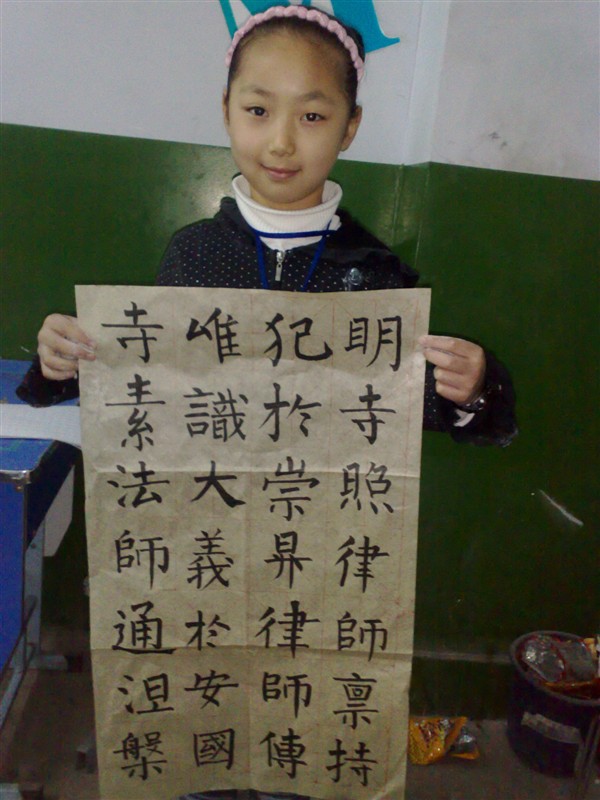 明寺照律師禀持
犯於崇昇律師傳
唯識大義於安國
寺素法師通涅槃